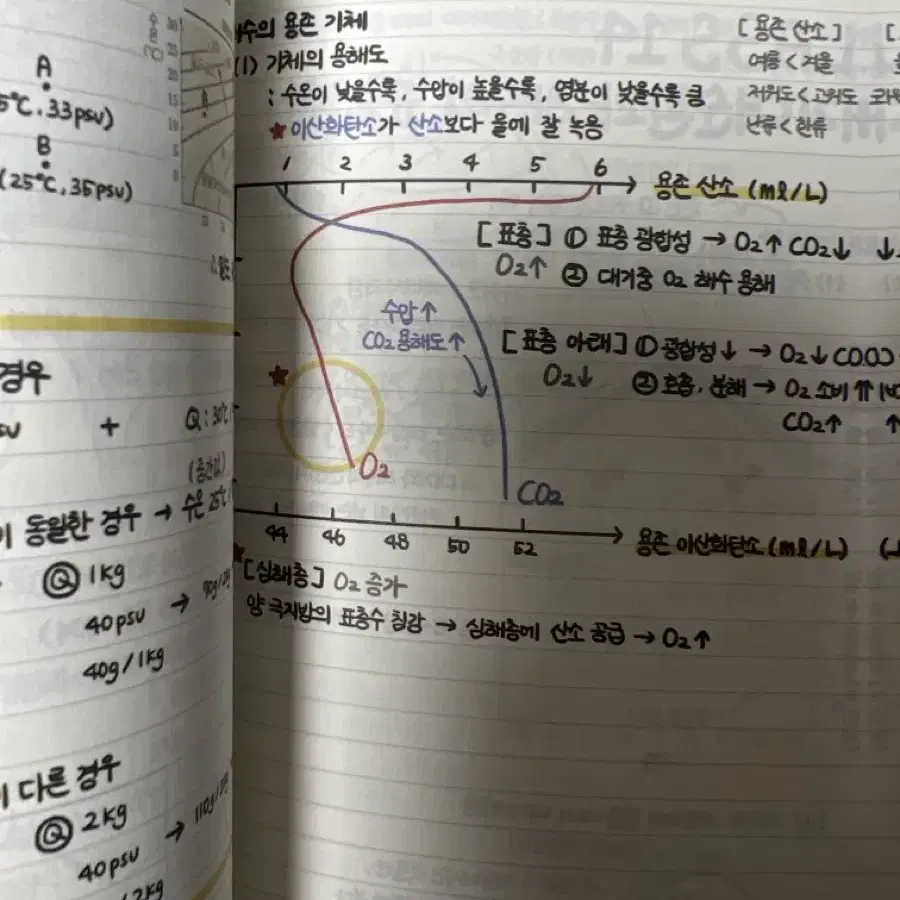 A
5℃, 33psu)
B
(25℃, 35psu)
경우
su + Q : 30℃
(중간값)
이 동일한 경우 → 수온 25℃
Q 1kg
40psu →
40g/1kg
다른 경우
Q 2kg
40psu →
/2kg
해수의 용존 기체
(1) 기체의 용해도
: 수온이 낮을수록, 수압이 높을수록, 염분이 낮을수록 큼
★ 이산화탄소가 산소보다 물에 잘 녹음
[용존 산소] [
여름 < 겨울
저위도 < 고위도
난류 < 한류
1 2 3 4 5 6
용존 산소 (ml/L)
[표층] ① 표층 광합성 → O₂↑ CO₂↓
O₂↑ ② 대기중 O₂ 해수 용해
수압↑
CO₂ 용해도↑
[표층 아래] ① 광합성↓ → O₂↓
O₂↓ ② 호흡, 분해 → O₂ 소비 ⇈
CO₂↑
★
O₂
CO₂
44 46 48 50 52
용존 이산화탄소 (ml/L)
[심해층] O₂ 증가
양 극지방의 표층수 침강 → 심해층에 산소 공급 → O₂↑